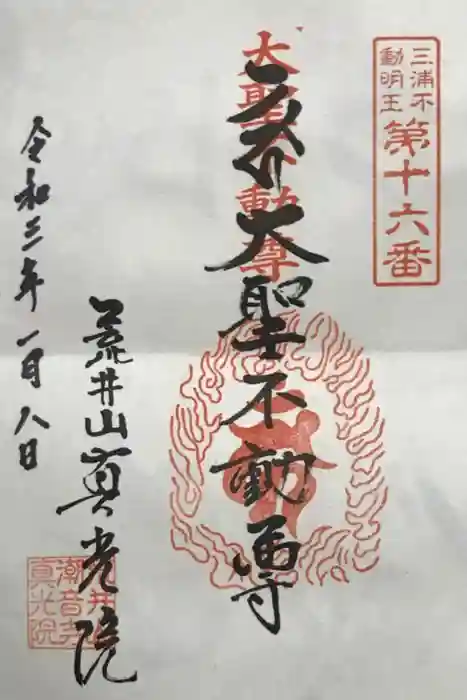 三浦不
動明王
第十六番
大聖不動尊
大聖不動尊
荒井山真光院
令和三年一月八日
潮音寺
真光院